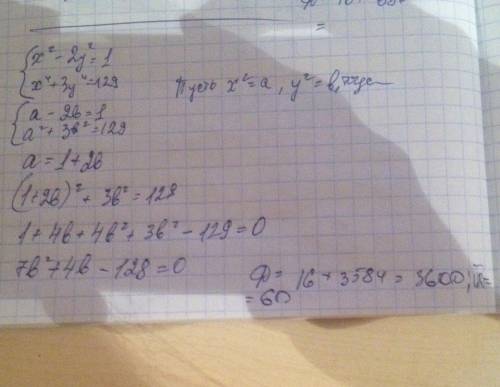 =
x² - 2y² = 1
x⁴ + 3y⁴ = 129
Пусть x² = a, y² = b,
a - 2b = 1
a² + 3b² = 129
a = 1 + 2b
(1 + 2b)² + 3b² = 129
1 + 4b + 4b² + 3b² - 129 = 0
7b² + 4b - 128 = 0
D = 16 + 3584 = 3600;
= 60